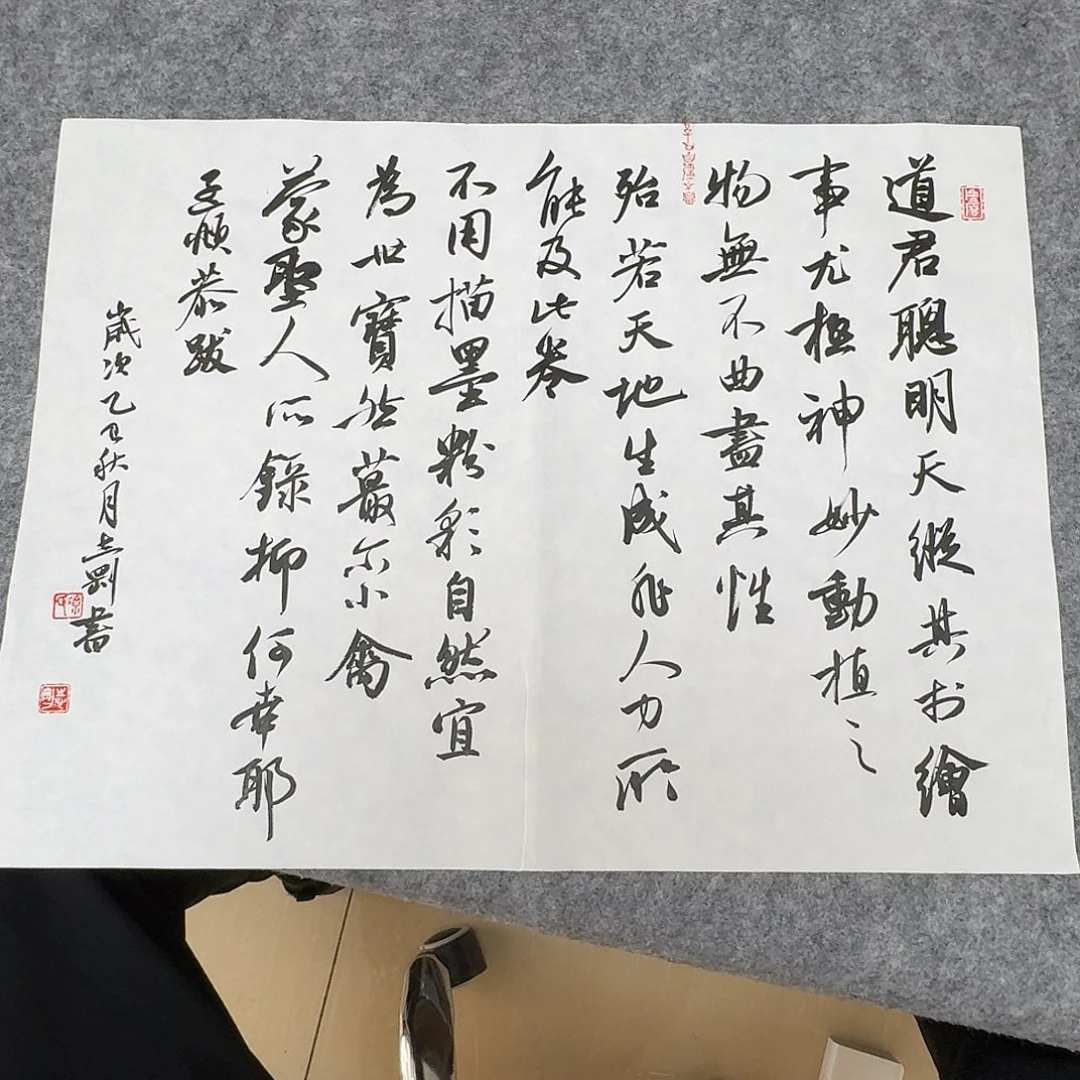 道君聰明天縱其於繪
事尤極神妙動植之
物無不曲盡其性
殆若天地生成非人力所
能及此卷
不用描墨粉彩自然宜
為世寶然蕞尔小禽
蒙聖人所錄抑何幸耶
孟頫恭跋
歲次乙巳秋月志剛書